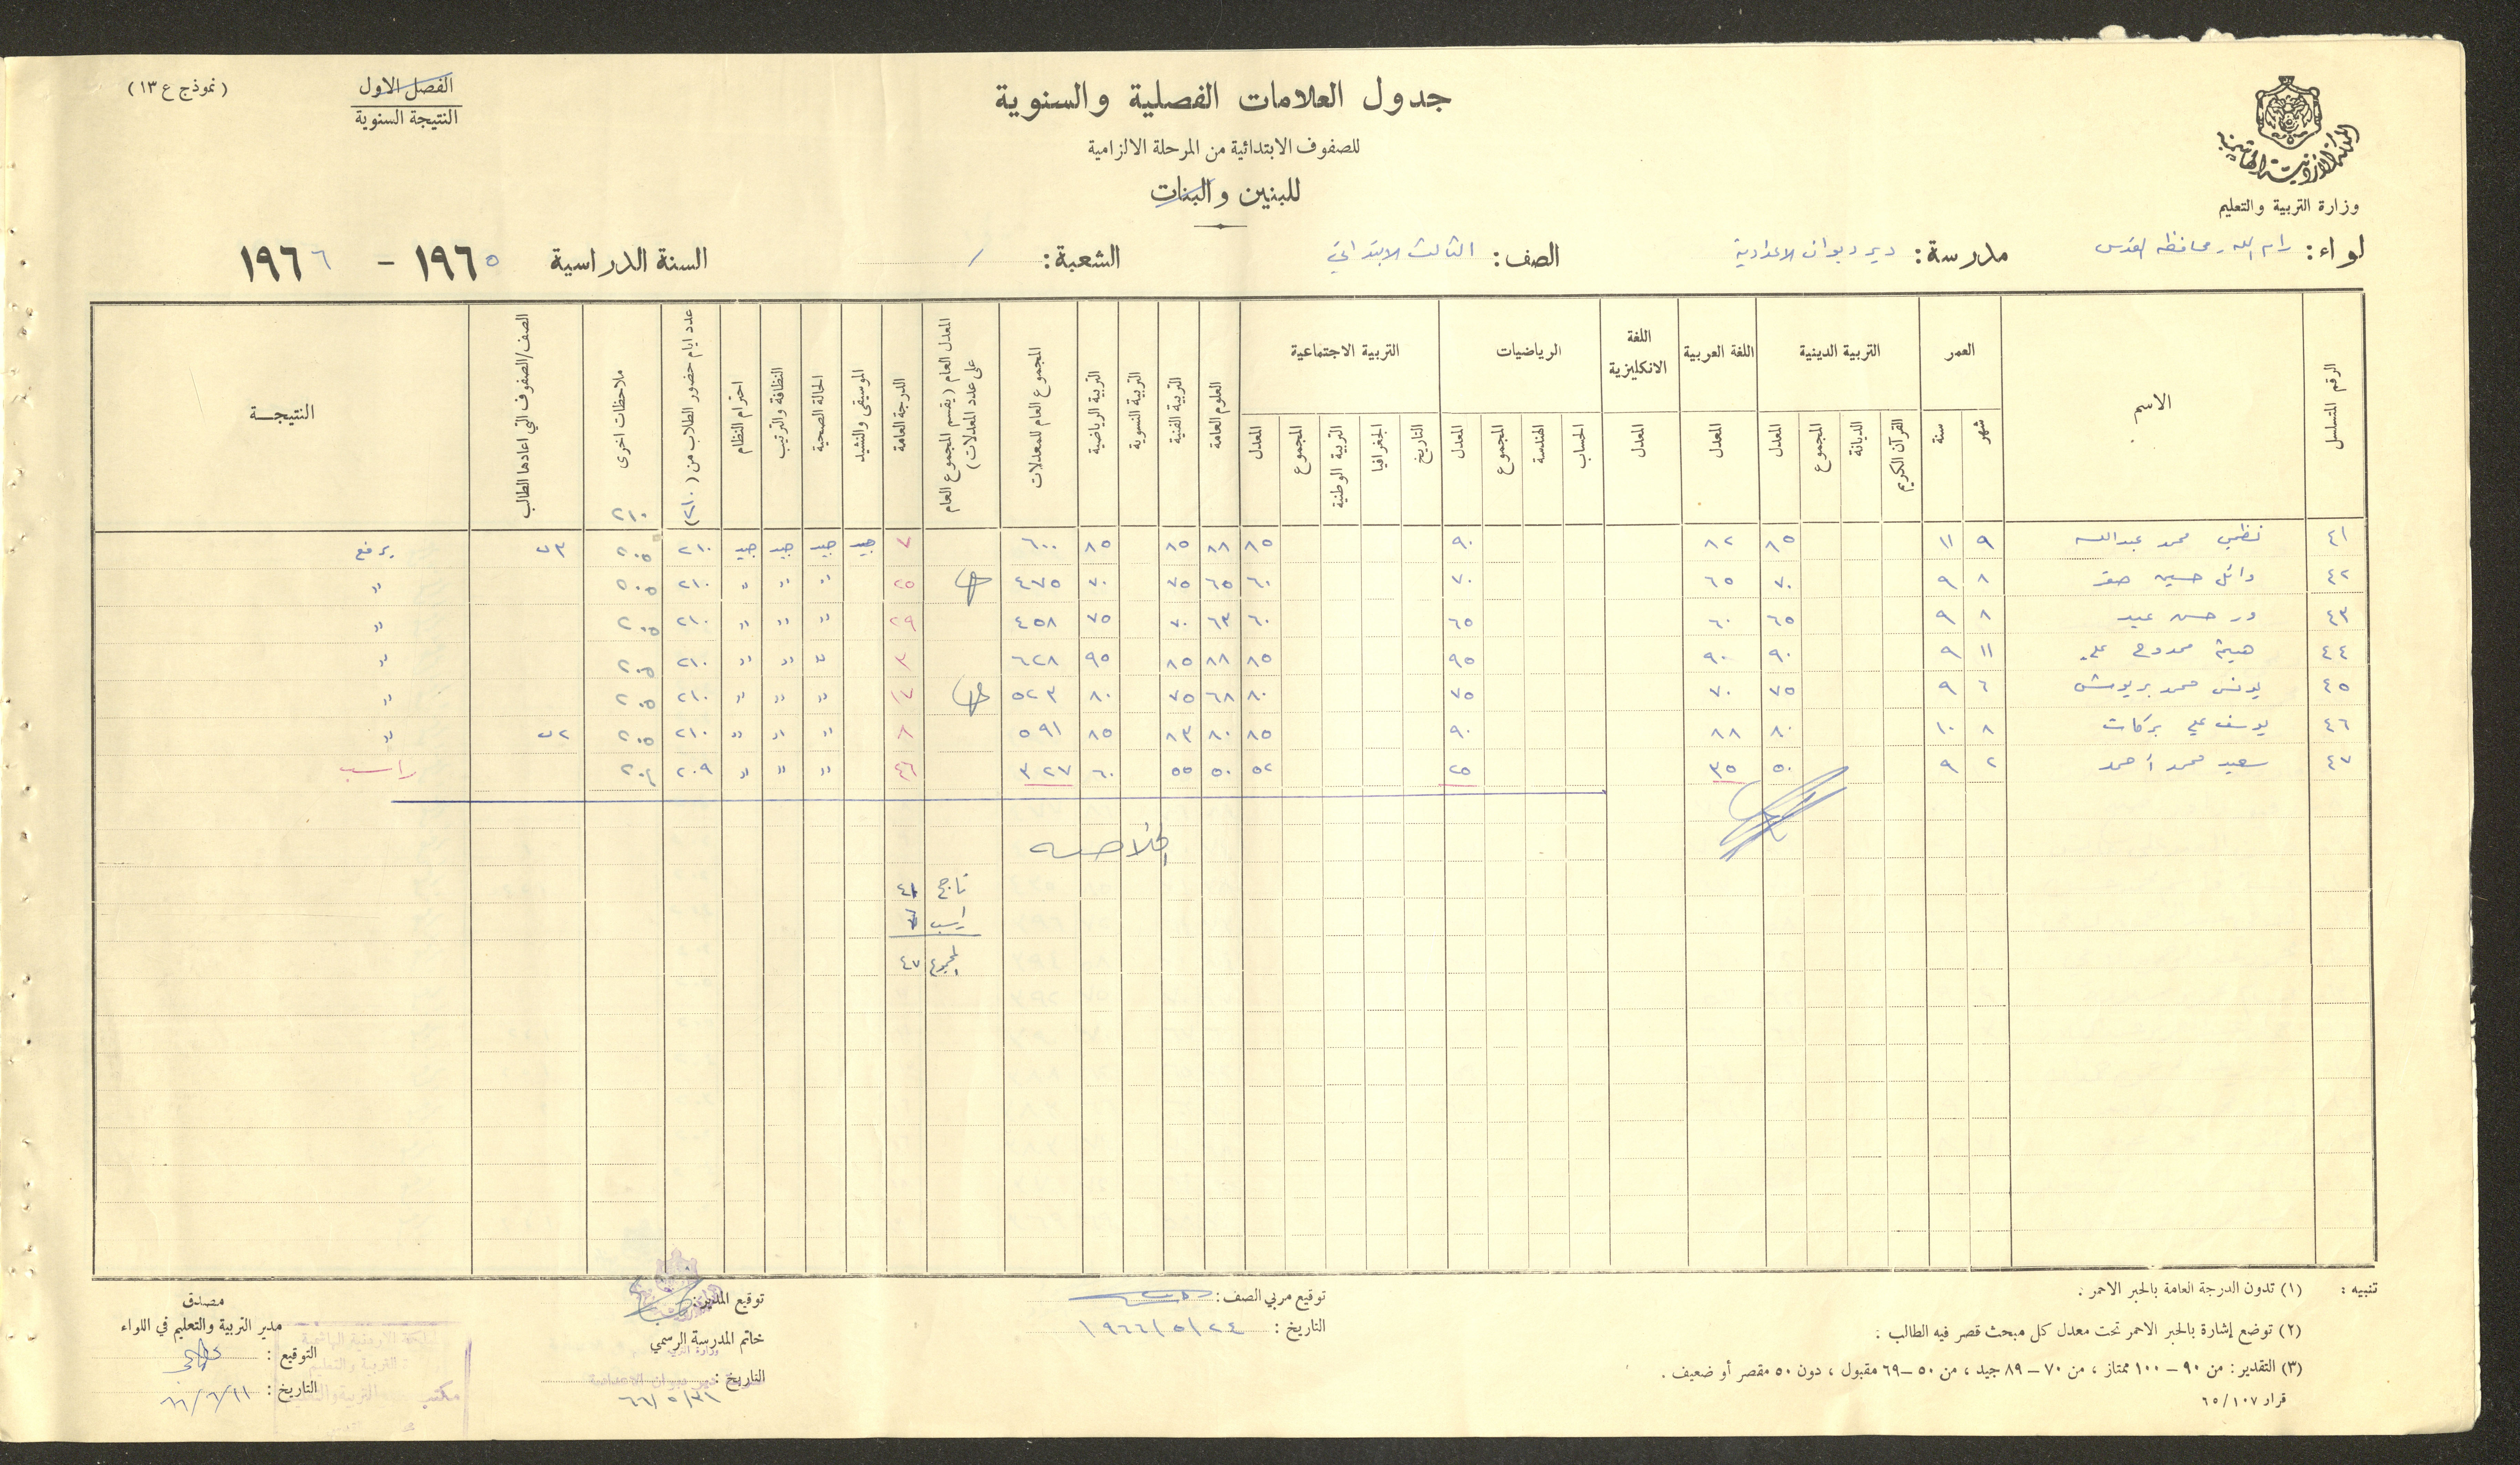 (نموذج ع ١٣)
الفصل الاول
النتيجة السنوية
جدول العلامات الفصلية والسنوية
للصفوف الابتدائية من المرحلة الالزامية
للبنين والبنات
المملكة الاردنية الهاشمية
وزارة التربية والتعليم
لواء: رام الله ومحافظة القدس مدرسة: دير دبوان الاعدادية الصف: الثالث الابتدائي الشعبة: / السنة الدراسية ١٩٦٥ - ١٩٦٦
الرقم المتسلسل الاسم العمر التربية الدينية اللغة العربية اللغة الانكليزية الرياضيات التربية الاجتماعية العلوم العامة التربية الفنية التربية النسوية التربية الرياضية المجموع العام للمعدلات المعدل العام (يقسم المجموع العام على عدد المعدلات) الدرجة العامة الموسيقى والنشيد الحالة الصحية النظافة والترتيب احترام النظام عدد ايام حضور الطلاب من (٢١٠) ملاحظات اخرى ٢١٠ الصف/الصفوف التي اعادها الطالب النتيجـــة
شهر سنة القرآن الكريم الديانة المجموع المعدل المعدل المعدل الحساب الهندسة المجموع المعدل التاريخ الجغرافيا التربية الوطنية المجموع المعدل
٤١ نظمي محمد عبدالله ٩ ١١ ٨٥ ٨٢ ٩٠ ٨٥ ٨٨ ٨٥ ٨٥ ٦٠٠ ٧ جيد جيد جيد جيد ٢١٠ ٢٠٥ ٣ب يرفع
٤٢ وائل حسين صقر ٨ ٩ ٧٠ ٦٥ ٧٠ ٦٠ ٦٥ ٧٥ ٧٠ ٤٧٥ ٢٥ " " " ٢١٠ ٢٠٥ "
٤٣ ور حسن عيد ٨ ٩ ٦٥ ٦٠ ٦٥ ٦٠ ٦٣ ٧٠ ٧٥ ٤٥٨ ٢٩ " " " ٢١٠ ٢٠٥ "
٤٤ هيثم ممدوح علي ١١ ٩ ٩٠ ٩٠ ٩٥ ٨٥ ٨٨ ٨٥ ٩٥ ٦٢٨ ٣ " " " ٢١٠ ٢٠٥ "
٤٥ يونس محمد ٦ ٩ ٧٥ ٧٠ ٧٥ ٨٠ ٦٨ ٧٥ ٨٠ ٥٢٣ ١٧ " " " ٢١٠ ٢٠٥ "
٤٦ يوسف علي بركات ٨ ١٠ ٨٠ ٨٨ ٩٠ ٨٥ ٨٠ ٨٣ ٨٥ ٥٩١ ٨ " " " ٢١٠ ٢٠٥ ٢ب "
٤٧ سعيد محمد أحمد ٢ ٩ ٥٠ ٣٥ ٢٥ ٥٢ ٥٠ ٥٥ ٦٠ ٣٢٧ " " " ٢٠٩ ٢٠٤ راسب
خلاصه
ناجح
راسب
المجموع ٤٧
تنبيه : (١) تدون الدرجة العامة بالحبر الاحمر .
(٢) توضع إشارة بالحبر الاحمر تحت معدل كل مبحث قصر فيه الطالب .
(٣) التقدير : من ٩٠ – ١٠٠ ممتاز ، من ٧٠ – ٨٩ جيد ، من ٥٠ – ٦٩ مقبول ، دون ٥٠ مقصر أو ضعيف .
قرار ٦٥/١٠٧
توقيع مربي الصف :
التاريخ : ١٩٦٦/٥/٢٤
توقيع المدير :
خاتم المدرسة الرسمي
التاريخ : ٦٦/٥/٣١
مصدق
مدير التربية والتعليم في اللواء
التوقيع :
التاريخ : ٦٦/٦/١١